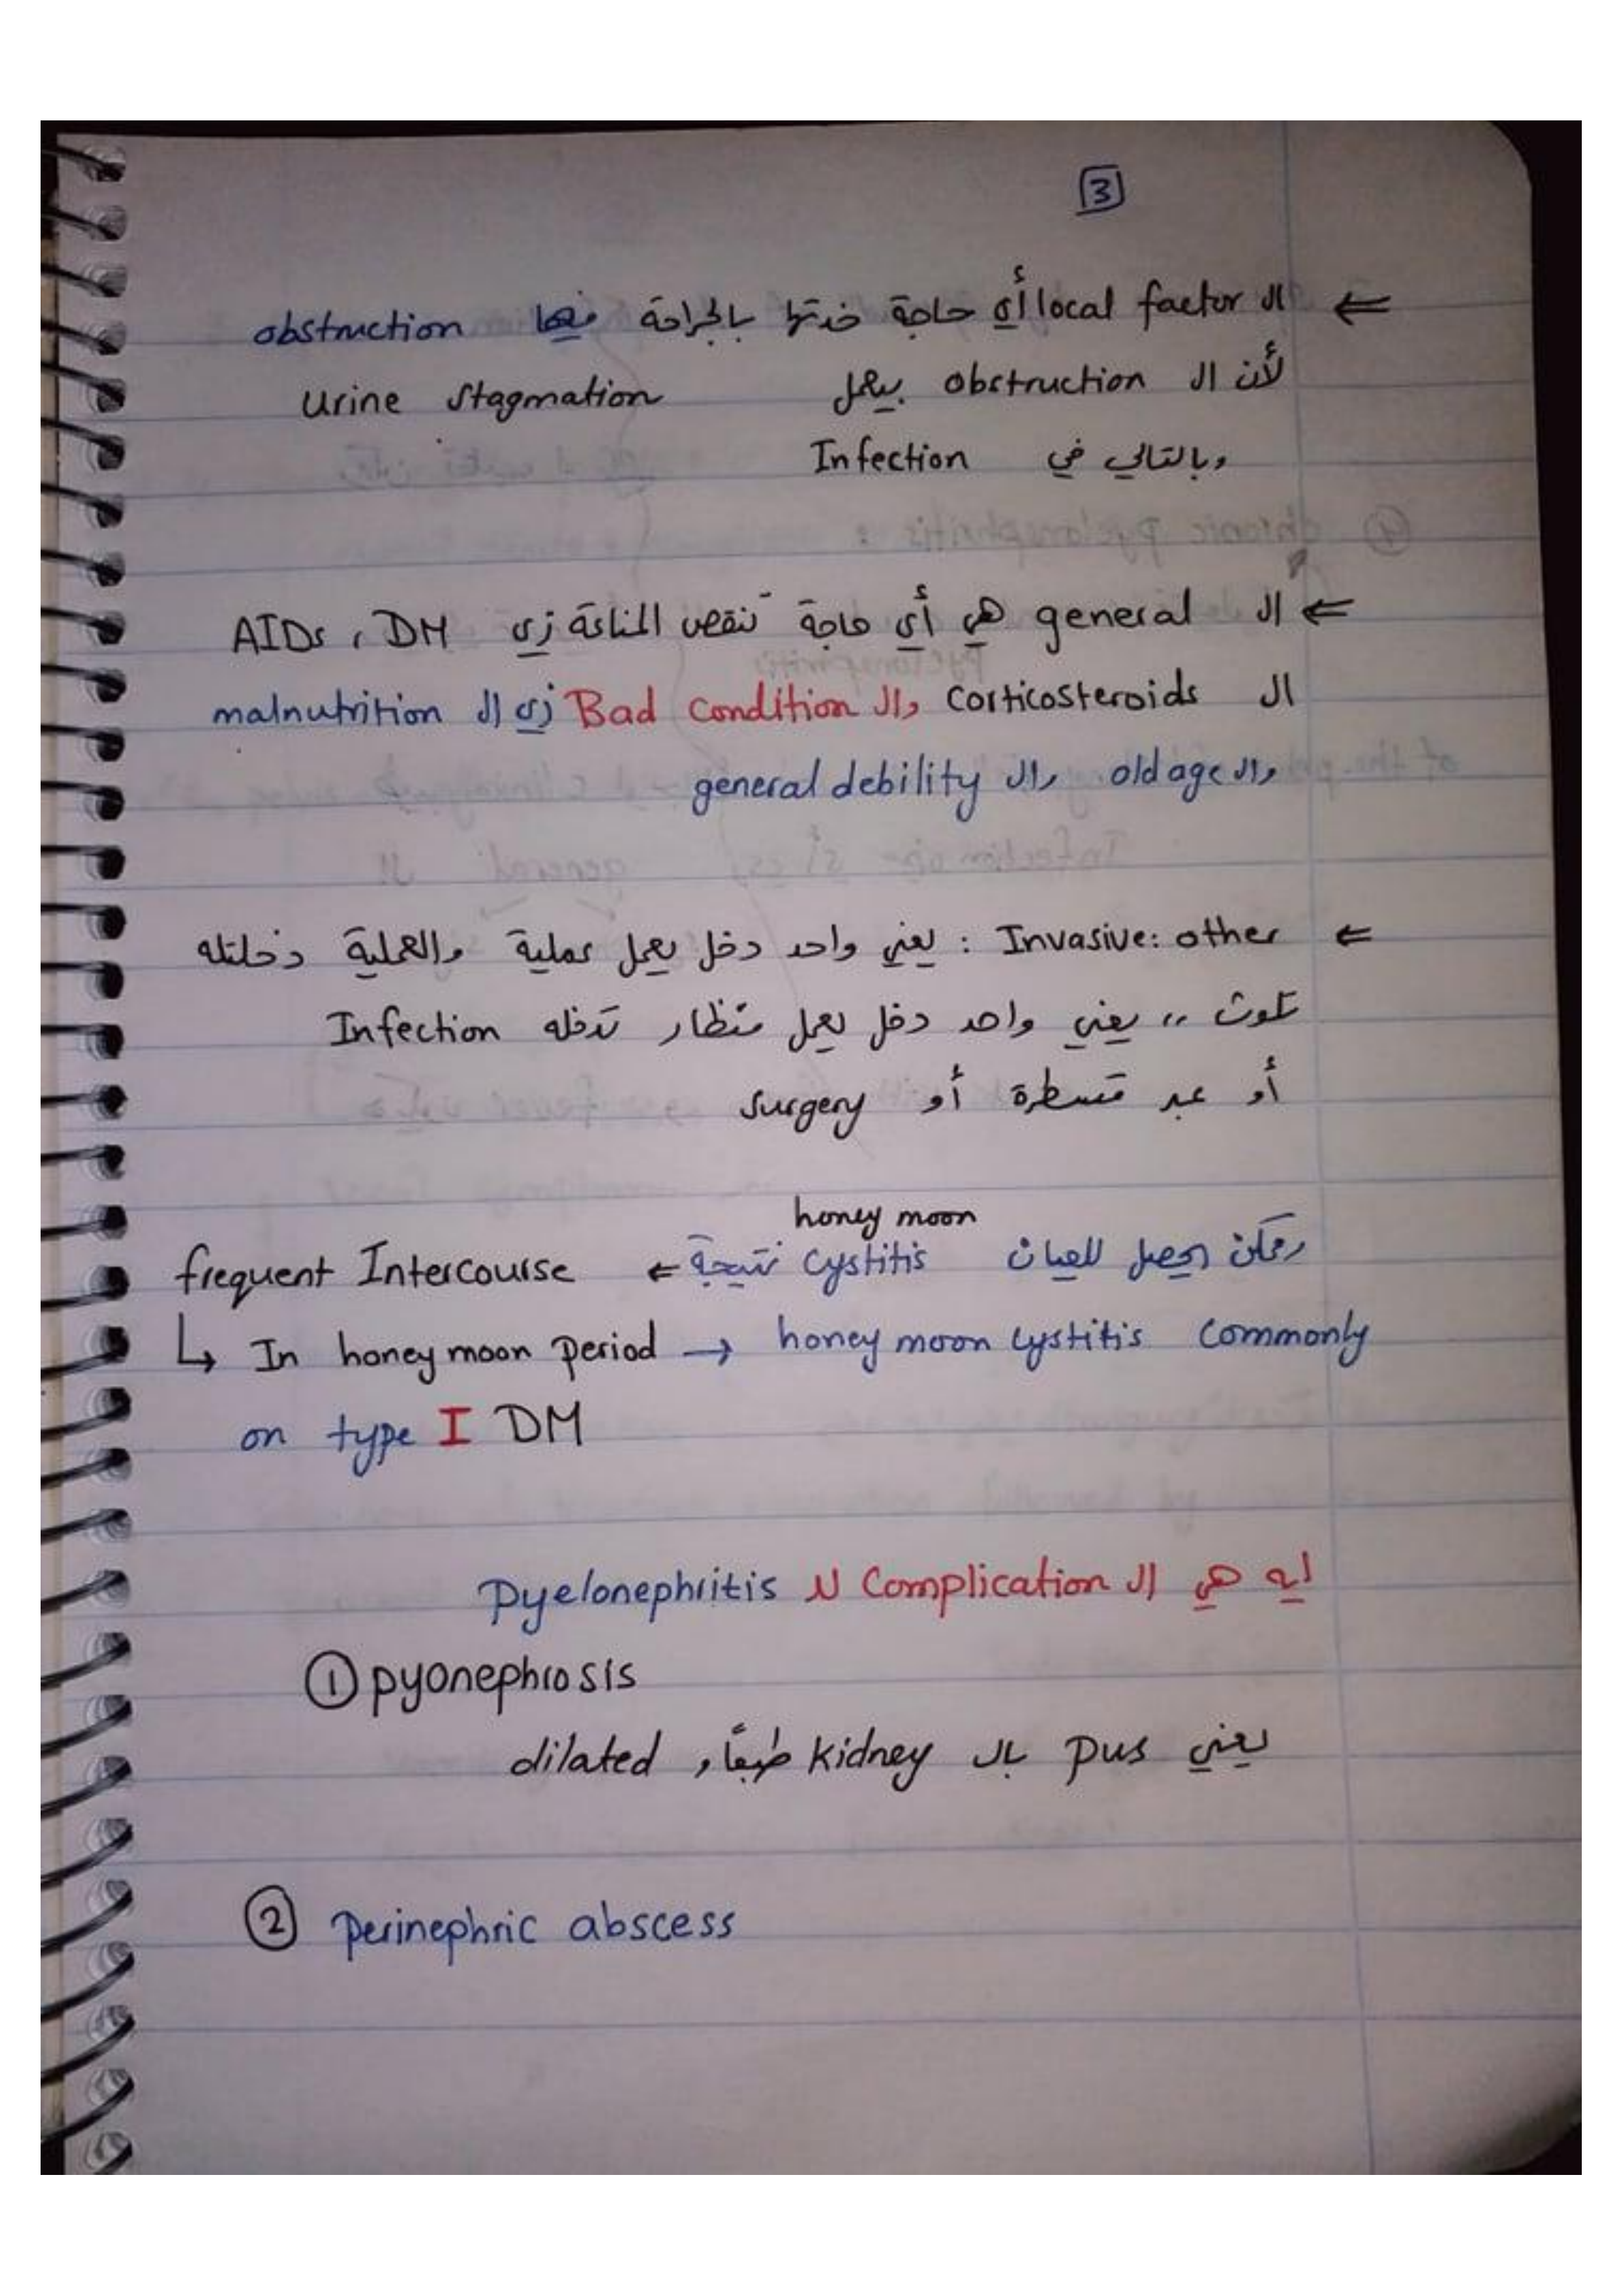 3
⇐ ال local factor أي حاجة خدتها بالجراحة فيها obstruction
لأن ال obstruction بيعمل Urine stagmation
وبالتالي في Infection
⇐ ال general هي أي حاجة تنقص المناعة زي AIDs ، DM
ال corticosteroids وال Bad condition زي ال malnutrition
وال old age وال general debility
⇐ Invasive: other : يعني واحد دخل يعمل عملية والعملية دخلتله
تلوث ,, يعني واحد دخل يعمل منظار تدخله Infection
أو عبر قسطرة أو surgery
honey moon
وممكن يحصل للعيان cystitis نتيجة ← frequent Intercourse
↳ In honey moon period → honey moon cystitis commonly
on type I DM
ايه هي ال complication لل Pyelonephritis
① pyonephrosis
يعني pus بال kidney طبعاً و dilated
② perinephric abscess